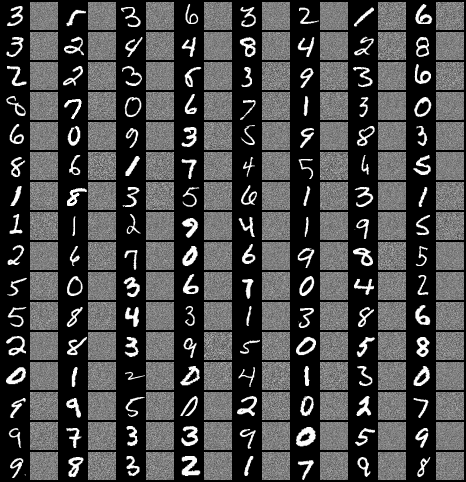 3 5 3 6 3 2 1 6
3 2 9 4 8 4 2 8
2 2 3 5 3 9 3 6
8 7 0 6 7 1 3 0
6 0 9 3 5 9 8 3
8 6 1 7 4 5 6 5
1 8 3 5 6 1 3 1
1 1 2 9 4 1 9 5
2 6 7 0 6 9 8 5
5 0 3 6 7 0 4 2
5 8 4 3 1 3 8 6
2 8 3 9 5 0 5 8
0 1 2 0 4 1 3 0
9 9 5 0 2 0 2 7
9 7 3 3 9 0 5 9
9 8 3 2 1 7 9 8